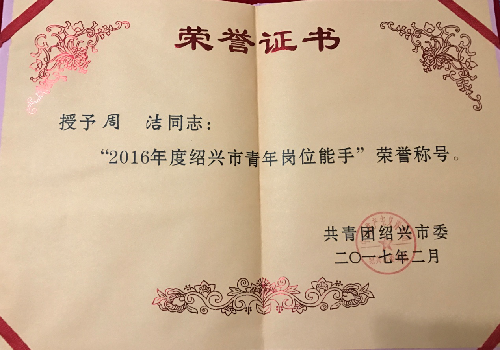 荣誉证书
授予周 洁同志：
“2016年度绍兴市青年岗位能手”荣誉称号。
共青团绍兴市委
二〇一七年二月